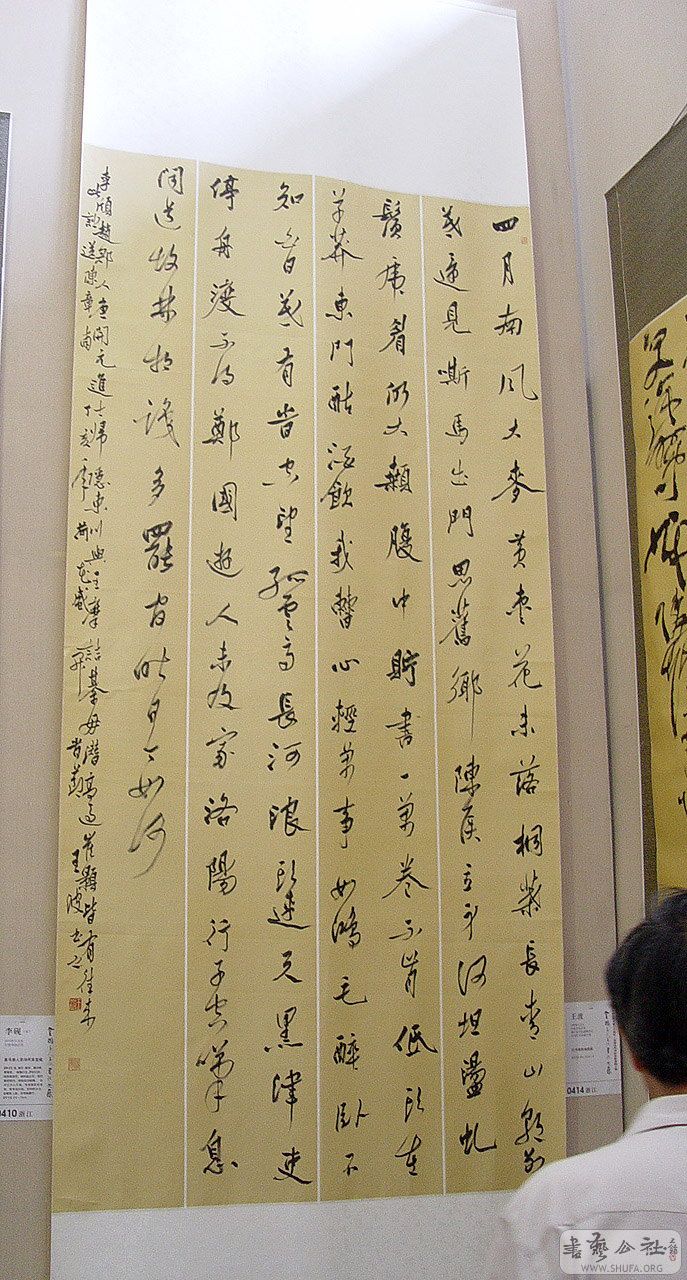 四月南風大麥黃棗花未落桐葉長青山朝別
暮還見嘶馬出門思舊鄉陳侯立身何坦蕩虬
鬚虎眉仍大顙腹中貯書一萬卷不肯低頭在
草莽東門酤酒飲我曹心輕萬事如鴻毛醉臥不
知白日暮有時空望孤雲高長河浪頭連天黑津吏
停舟渡不得鄭國遊人未及家洛陽行子空嘆息
聞道故林相識多罷官昨日今如何
李頎趙郡人唐開元進士歸隱東川與王摩詰綦毋潛高適崔顥皆有往來
此詩送陳章甫 王波書之
王波
0414浙江
0410浙江
書藝公社
WWW.SHUFA.ORG